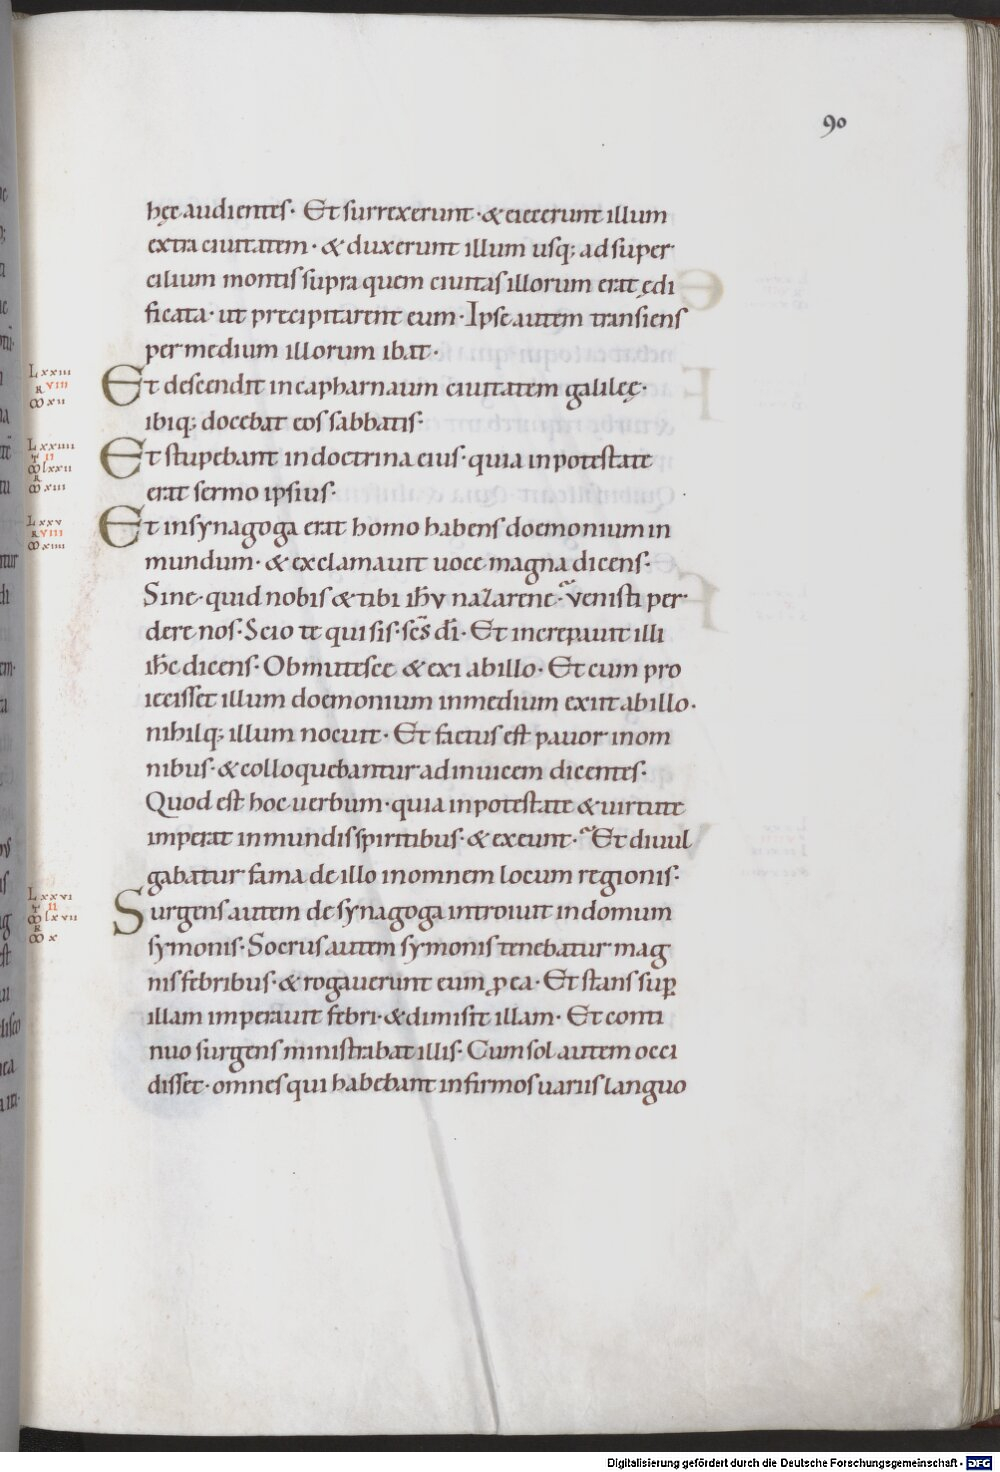 90
hęc audientes· Et surrexerunt· & eiecerunt illum
extra ciuitatem· & duxerunt illum usq; ad super
cilium montis supra quem ciuitas illorum erat ędi
ficata· ut precipitarent eum· Ipse autem transiens
per medium illorum ibat·
Lxxiii
R VIII
ꝏ xii
Et descendit in capharnaum ciuitatem galileę·
ibiq; docebat eos sabbatis·
Lxxiiii
T II
ꝏ lxxii
R
ꝏ xiii
Et stupebant in doctrina eius· quia in potestate
erat sermo ipsius·
Lxxv
R VIII
ꝏ xiiii
Et in synagoga erat homo habens doemonium in
mundum· & exclamauit uoce magna dicens·
Sine· quid nobis & tibi ihv nazarene· venisti per
dere nos· Scio te qui sis· scs di· Et increpauit illi
ihc dicens· Obmutesce & exi ab illo· Et cum pro
iecisset illum doemonium in medium exiit ab illo·
nihilq; illum nocuit· Et factus est pauor in om
nibus· & colloquebantur ad inuicem dicentes·
Quod est hoc uerbum· quia in potestate & uirtute
imperat inmundis spiritibus· & exeunt· Et diuul
gabatur fama de illo in omnem locum regionis·
Lxxvi
T II
ꝏ lxvii
R
ꝏ x
Surgens autem de synagoga introiuit in domum
symonis· Socrus autem symonis tenebatur mag
nis febribus· & rogauerunt eum ꝓ ea· Et stans sup̄
illam imperauit febri· & dimisit illam· Et conti
nuo surgens ministrabat illis· Cum sol autem occi
disset· omnes qui habebant infirmos uariis languo
Digitalisierung gefördert durch die Deutsche Forschungsgemeinschaft - DFG